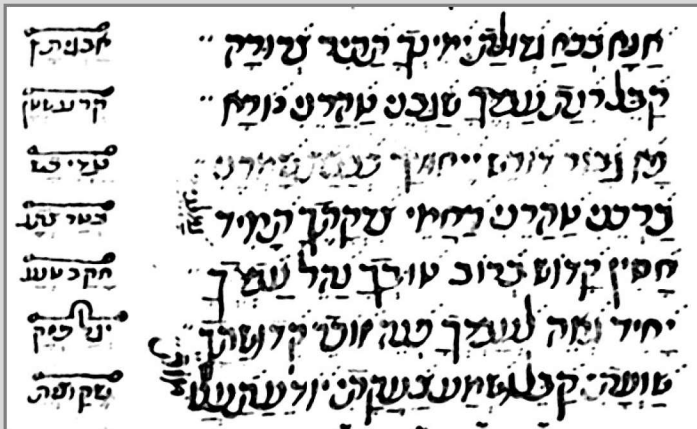 אנא בכח גדולת ימינך תתיר צרורה אבגיתץ
קבל רינת עמך שגבנו טהרנו נורא קרעשטן
נא גבור דורשי ייחודך כבבת
ברכנו טהרנו רחמי צדקתך תמיד בטרצתג
חסין קדוש ברוב טובך נהל עדתך חקבטנע
יחיד גאה לעמך פנה זוכרי קדושתך
קבל ושמע צעקתנו יודע שקוצית